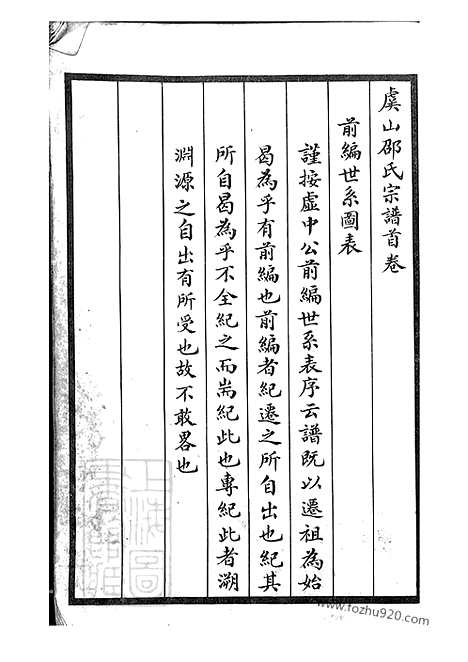 虞山邵氏宗譜首卷
前編世系圖表
謹按虛中公前編世系表序云譜既以遷祖為始
曷為乎有前編也前編者紀遷之所自出也紀其
所自曷為乎不全紀之而耑紀此也專紀此者溯
淵源之自出有所受也故不敢畧也
www.fozhu920.com